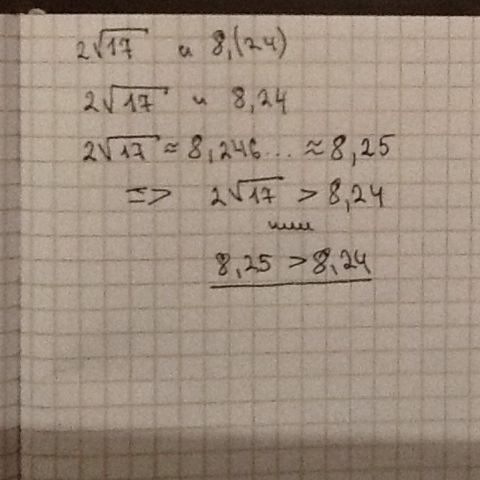 2√17 и 8,(24)
2√17 и 8,24
2√17 ≈ 8,246... ≈ 8,25
=> 2√17 > 8,24
или
8,25 > 8,24